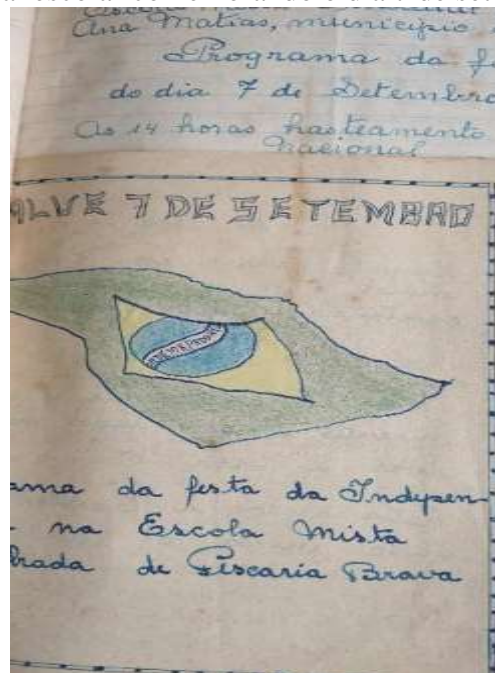 Ana Matias, município
Programa da f
do dia 7 de Setembro
As 14 horas hasteamento
nacional
ALVE 7 DE SETEMBRO
ama da festa da Indepen-
na Escola Mista
brada de Pescaria Brava